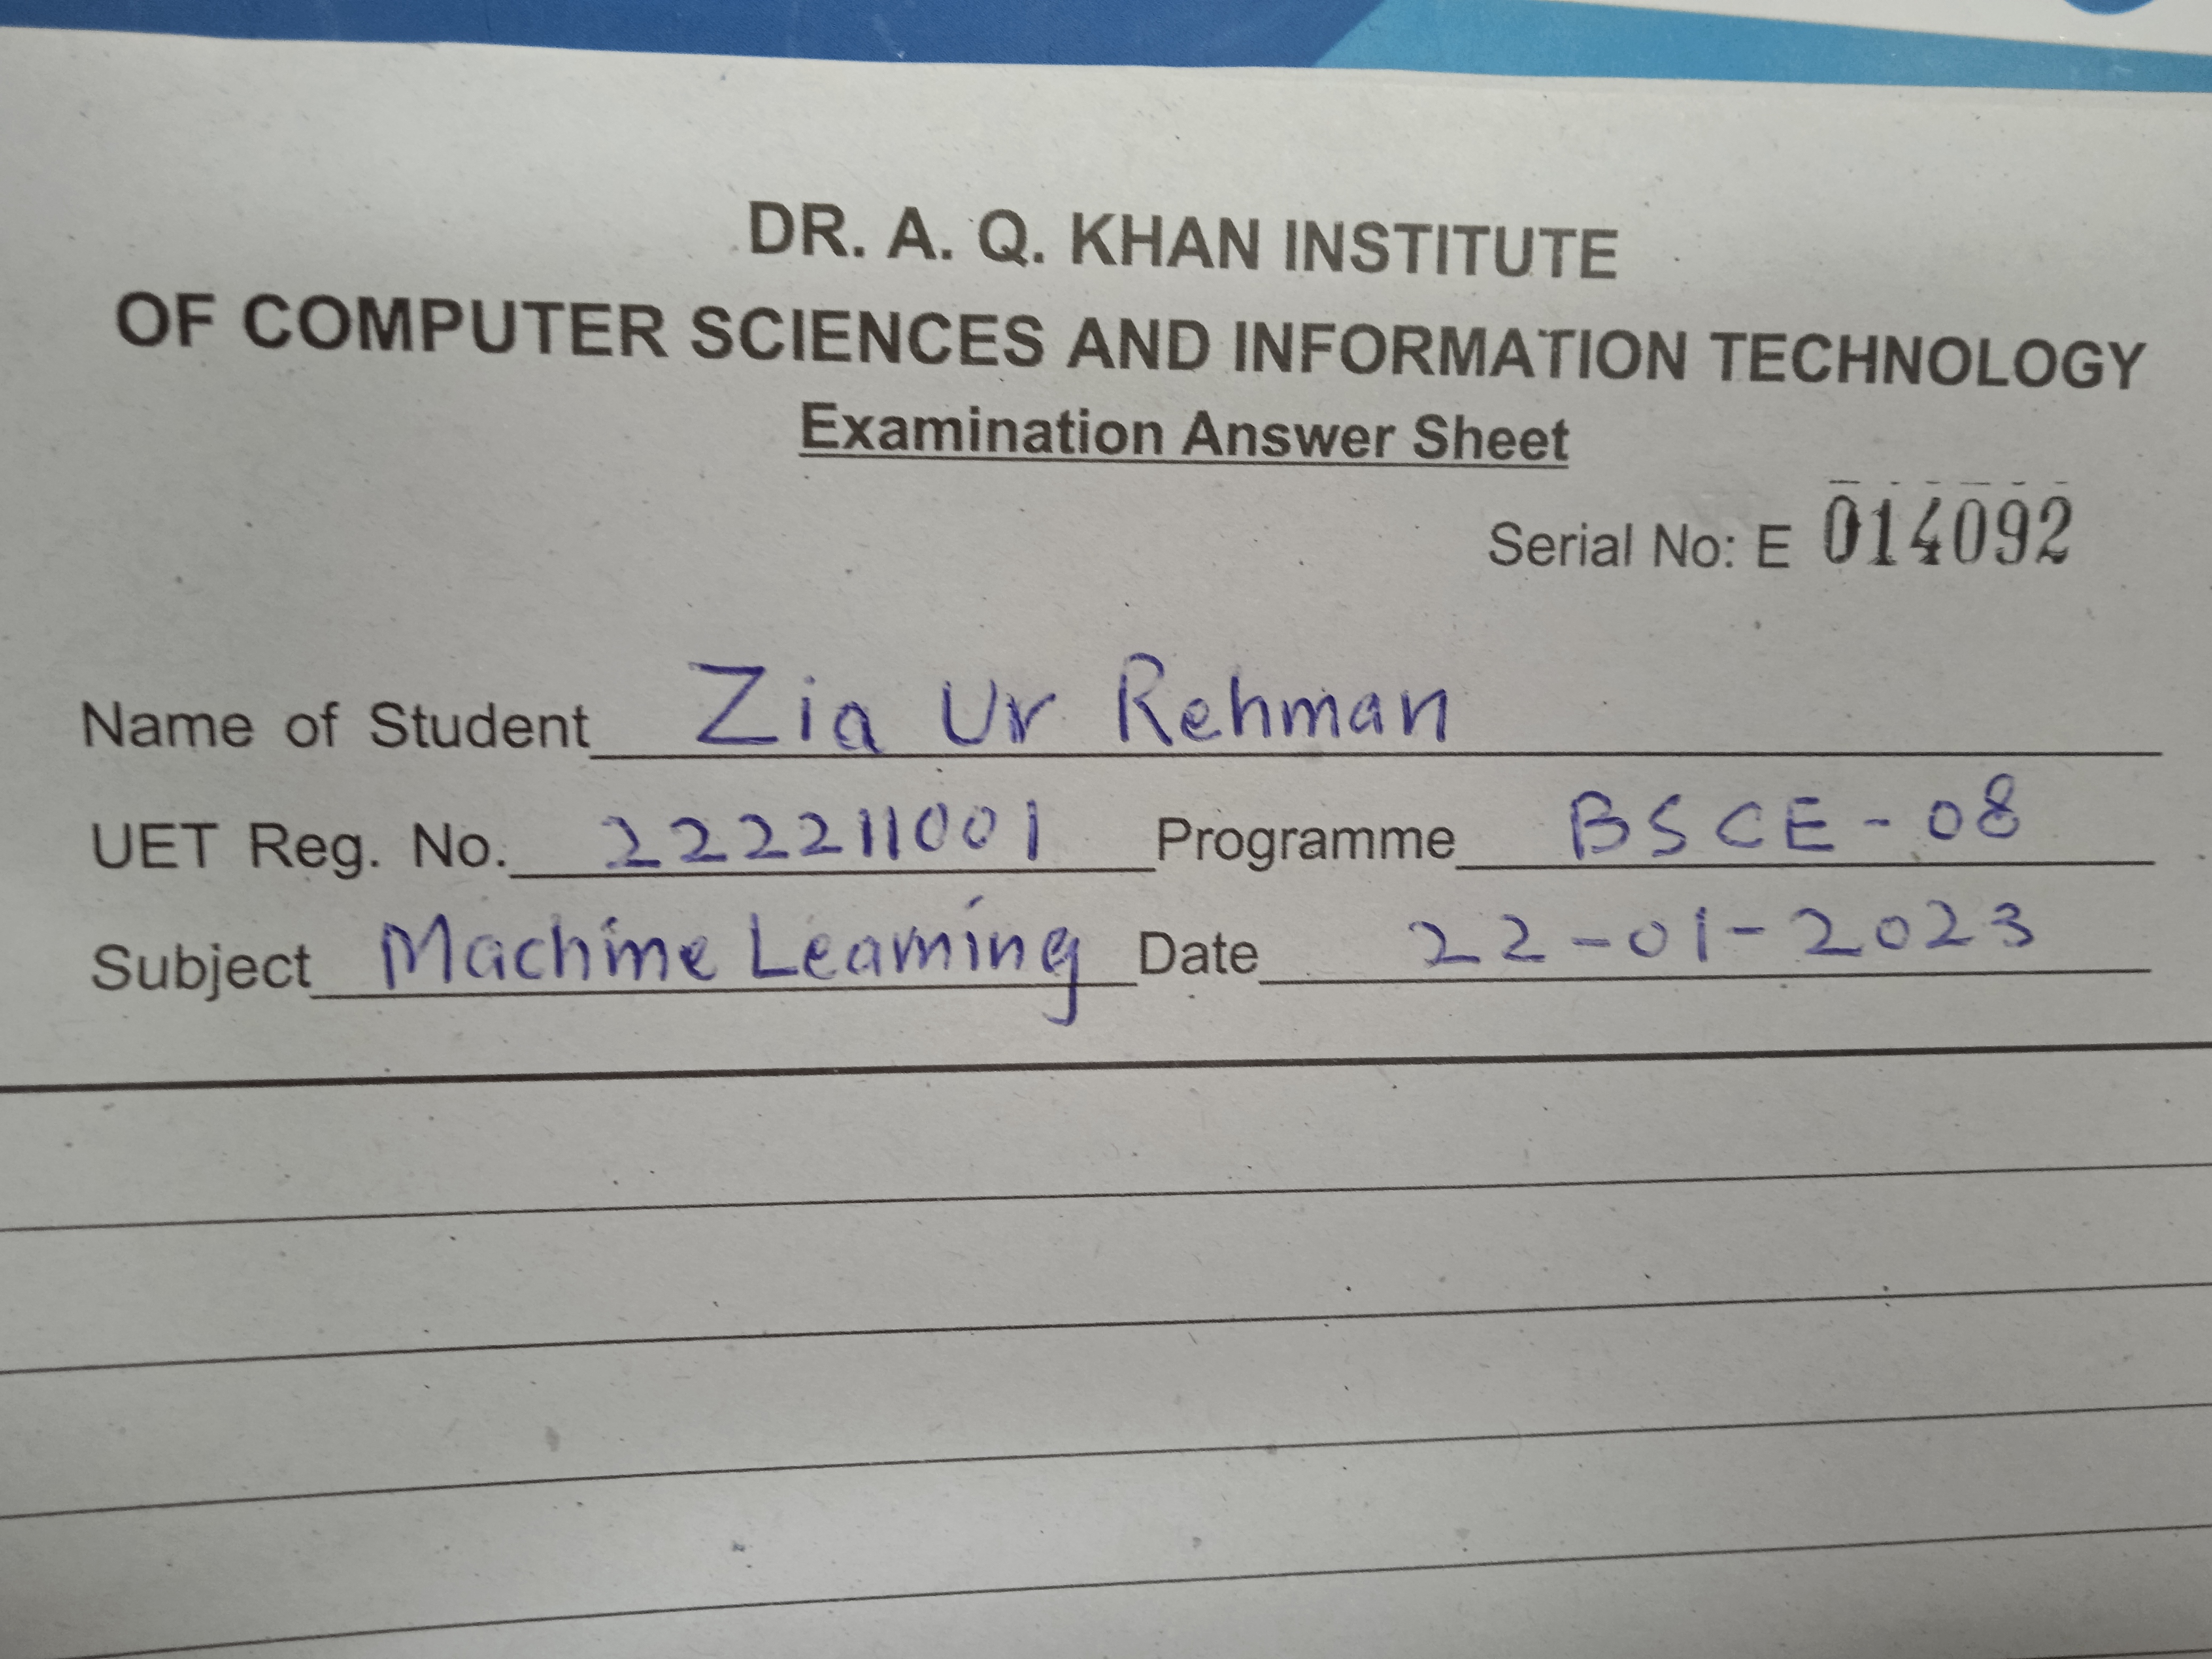 DR. A. Q. KHAN INSTITUTE
OF COMPUTER SCIENCES AND INFORMATION TECHNOLOGY
Examination Answer Sheet
Serial No: E 014092
Name of Student Zia Ur Rehman
UET Reg. No. 222211001 Programme BSCE-08
Subject Machine Learning Date 22-01-2023